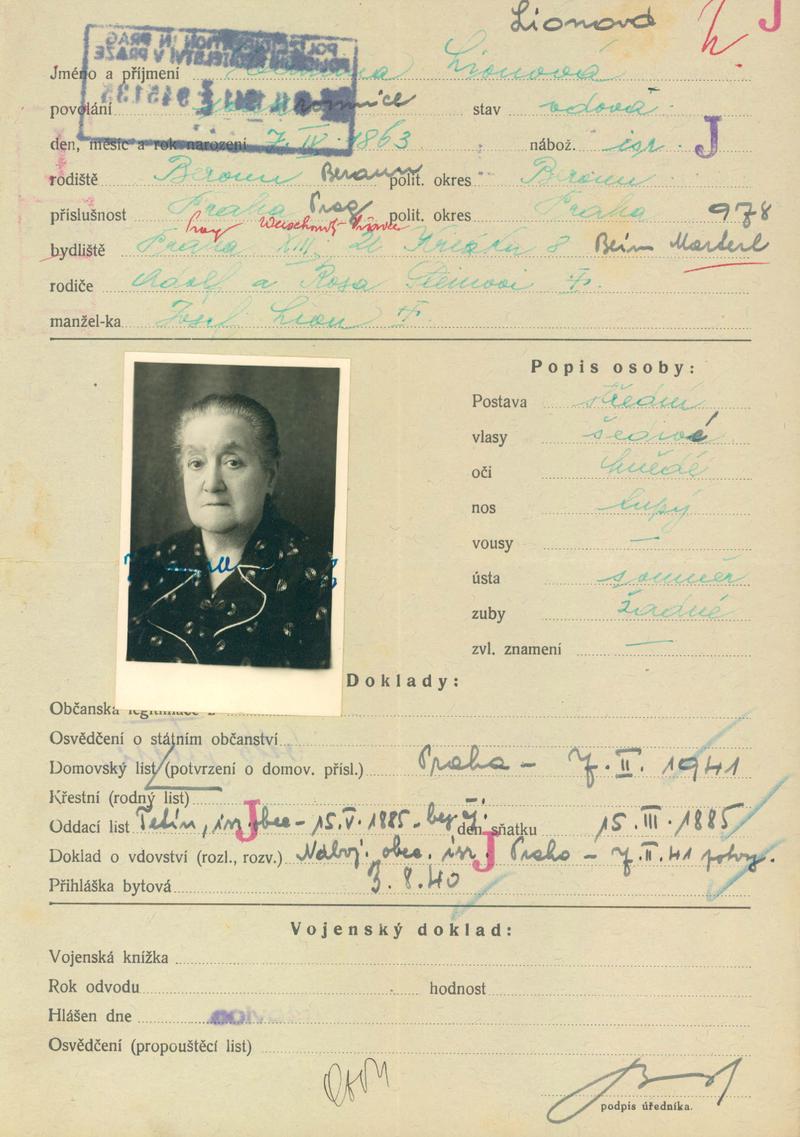 Lionová
J
Jméno a příjmení Lionová
povolání stav vdova
den, měsíc a rok narození 7. IV. 1863 nábož. isr. J
rodiště Beroun Beraun polit. okres Beroun
příslušnost Praha Prag polit. okres Praha 978
Prag
bydliště Praha XIII, 8 Beim Marterl
rodiče Adolf a Rosa
manžel-ka Josef Lion
Popis osoby:
Postava střední
vlasy šedivé
oči hnědé
nos tupý
vousy —
ústa souměr
zuby žádné
zvl. znamení —
Doklady:
Občanská legitimace
Osvědčení o státním občanství
Domovský list (potvrzení o domov. přísl.) Praha – 7. II. 1941
Křestní (rodný list) —
Oddací list Tetín, isr. obec – 15. V. 1885 – bez čj. den sňatku 15. III. 1885
J
Doklad o vdovství (rozl., rozv.) Nábož. obec. isr. Praha – 7. II. 41 potvrz.
J
Přihláška bytová 3. 8. 40
Vojenský doklad:
Vojenská knížka
Rok odvodu hodnost
Hlášen dne
Osvědčení (propouštěcí list)
podpis úředníka.